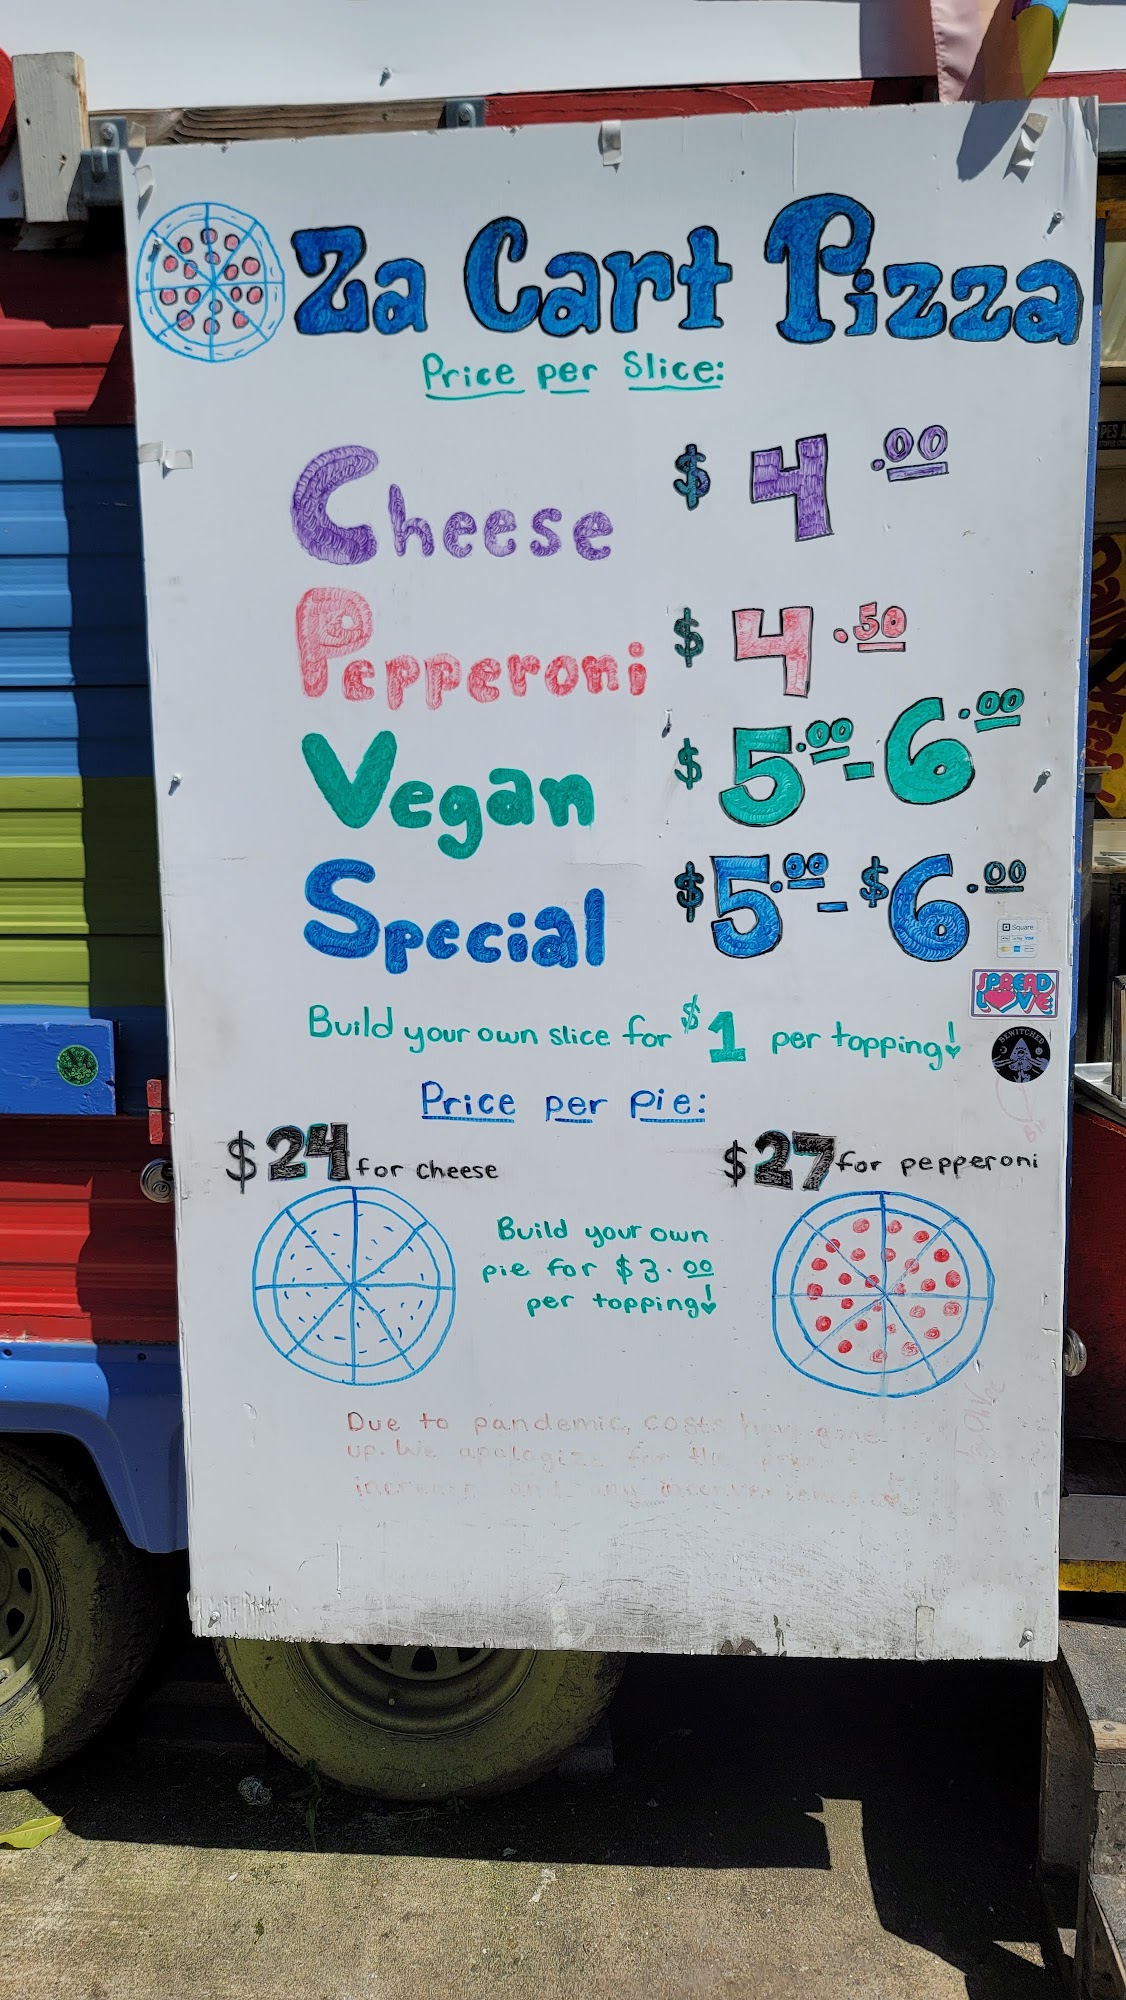 Za Cart Pizza
Price per Slice:
Cheese $4.00
Pepperoni $4.50
Vegan $5.00-6.00
Special $5.00-$6.00
Square
SPREAD LOVE
BEWITCHED
Build your own slice for $1 per topping!
Price per pie:
$24 for cheese
$27 for pepperoni
Build your own
pie for $3.00
per topping!
Due to pandemic, costs have gone
up. We apologize for the
increase and any inconvenience